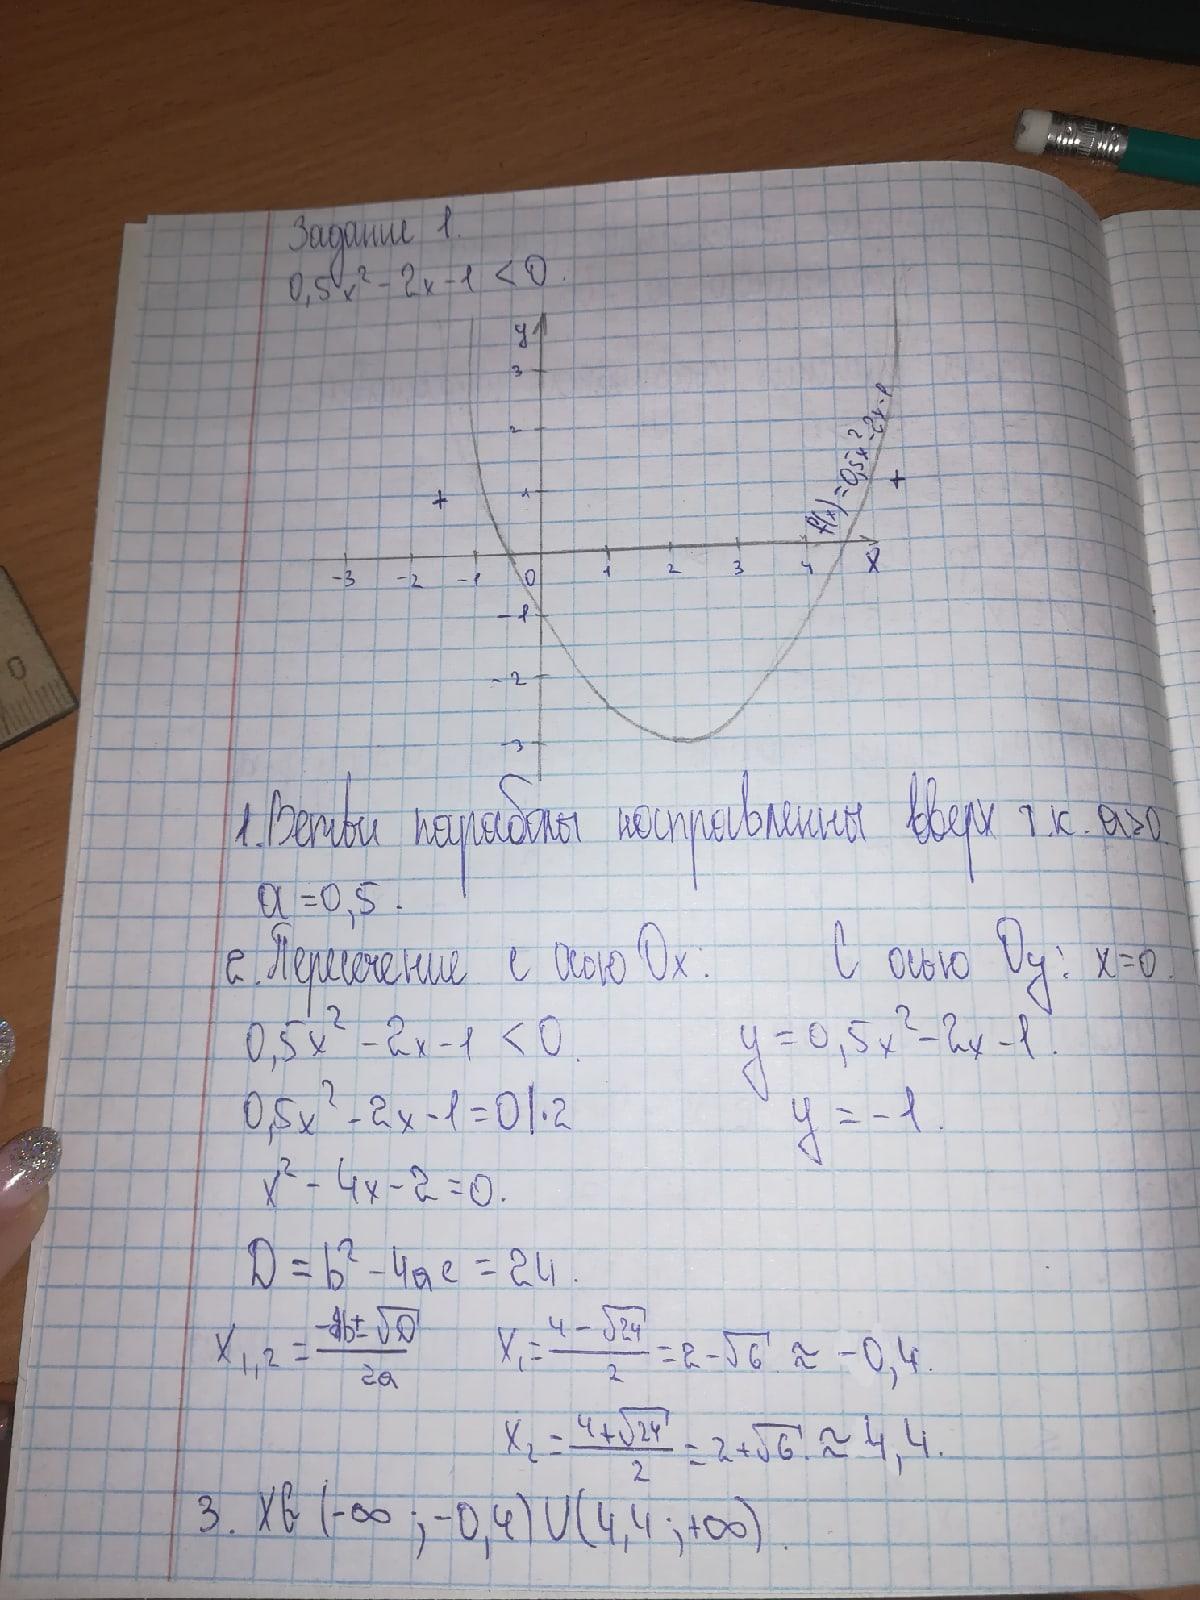 Задание 1.
0,5x² - 2x - 1 < 0.
y
3
2
1
+
+
f(x) = 0,5x² - 2x - 1
-3 -2 -1 0 1 2 3 4 x
-1
-2
-3
1. Ветви параболы носправленны вверх т.к. a>0
a = 0,5.
2. Пересечение с осью Ox: С осью Oy: x=0.
0,5x² - 2x - 1 < 0. y = 0,5x² - 2x - 1.
0,5x² - 2x - 1 = 0 | · 2 y = -1.
x² - 4x - 2 = 0.
D = b² - 4ac = 24.
x₁,₂ = (-b ± √D) / 2a x₁ = (4 - √24) / 2 = 2 - √6 ≈ -0,4.
x₂ = (4 + √24) / 2 = 2 + √6. ≈ 4,4.
3. x ∈ (-∞ ; -0,4) ∪ (4,4 ; +∞).
0